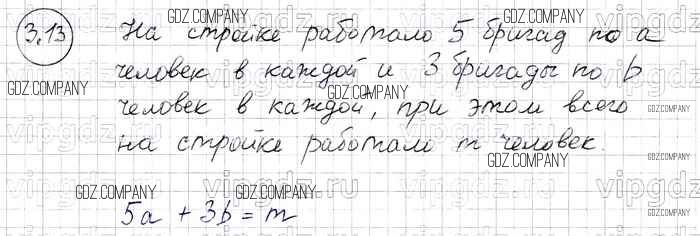 3.13 На стройке работало 5 бригад по a
человек в каждой и 3 бригады по b
человек в каждой, при этом всего
на стройке работало m человек.
5a + 3b = m
GDZ.COMPANY
GDZ.COMPANY
GDZ.COMPANY
GDZ.COMPANY
GDZ.COMPANY
GDZ.COMPANY
GDZ.COMPANY
GDZ.COMPANY
GDZ.COMPANY
vipgdz.ru
vipgdz.ru
vipgdz.ru
vipgdz.ru